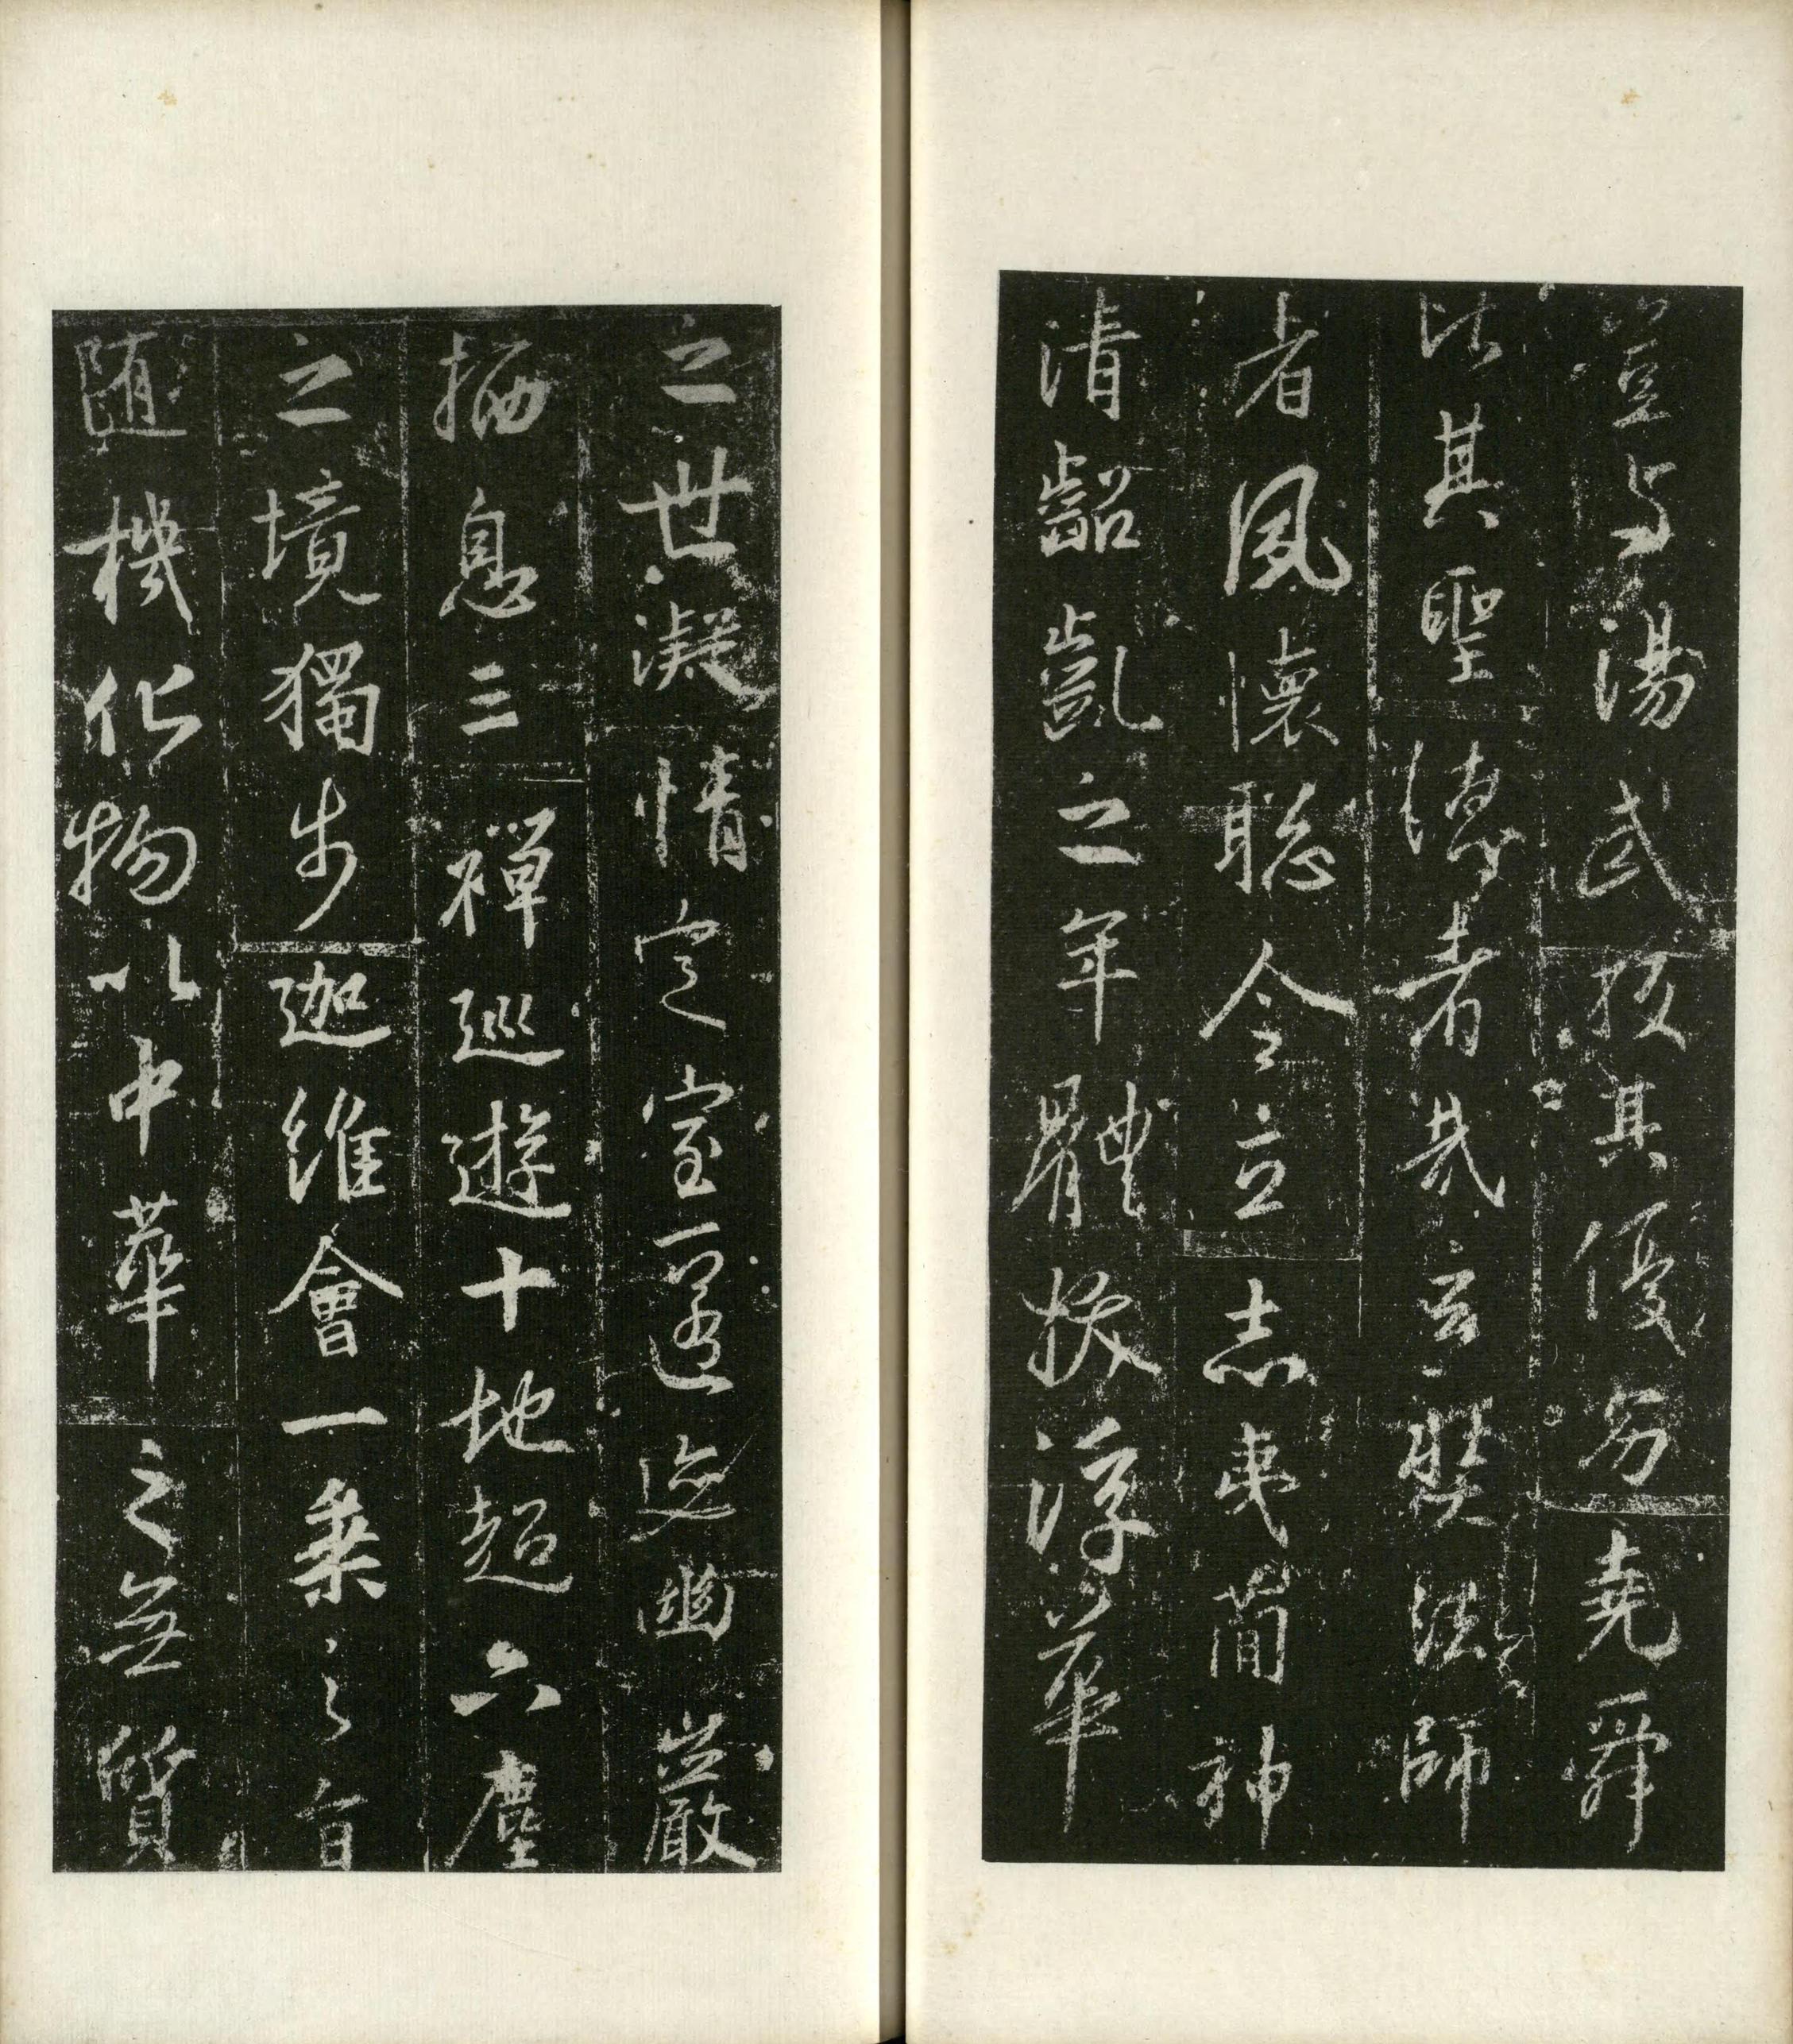 豈与湯武校其優劣堯舜
比其聖德者哉玄奘法師
者夙懷聡令立志夷簡神
清齠齔之年體拔浮華
之世凝情定室匿迹幽巖
栖息三禪巡遊十地超六塵
之境獨步迦維會一乘之旨
随機化物以中華之無質